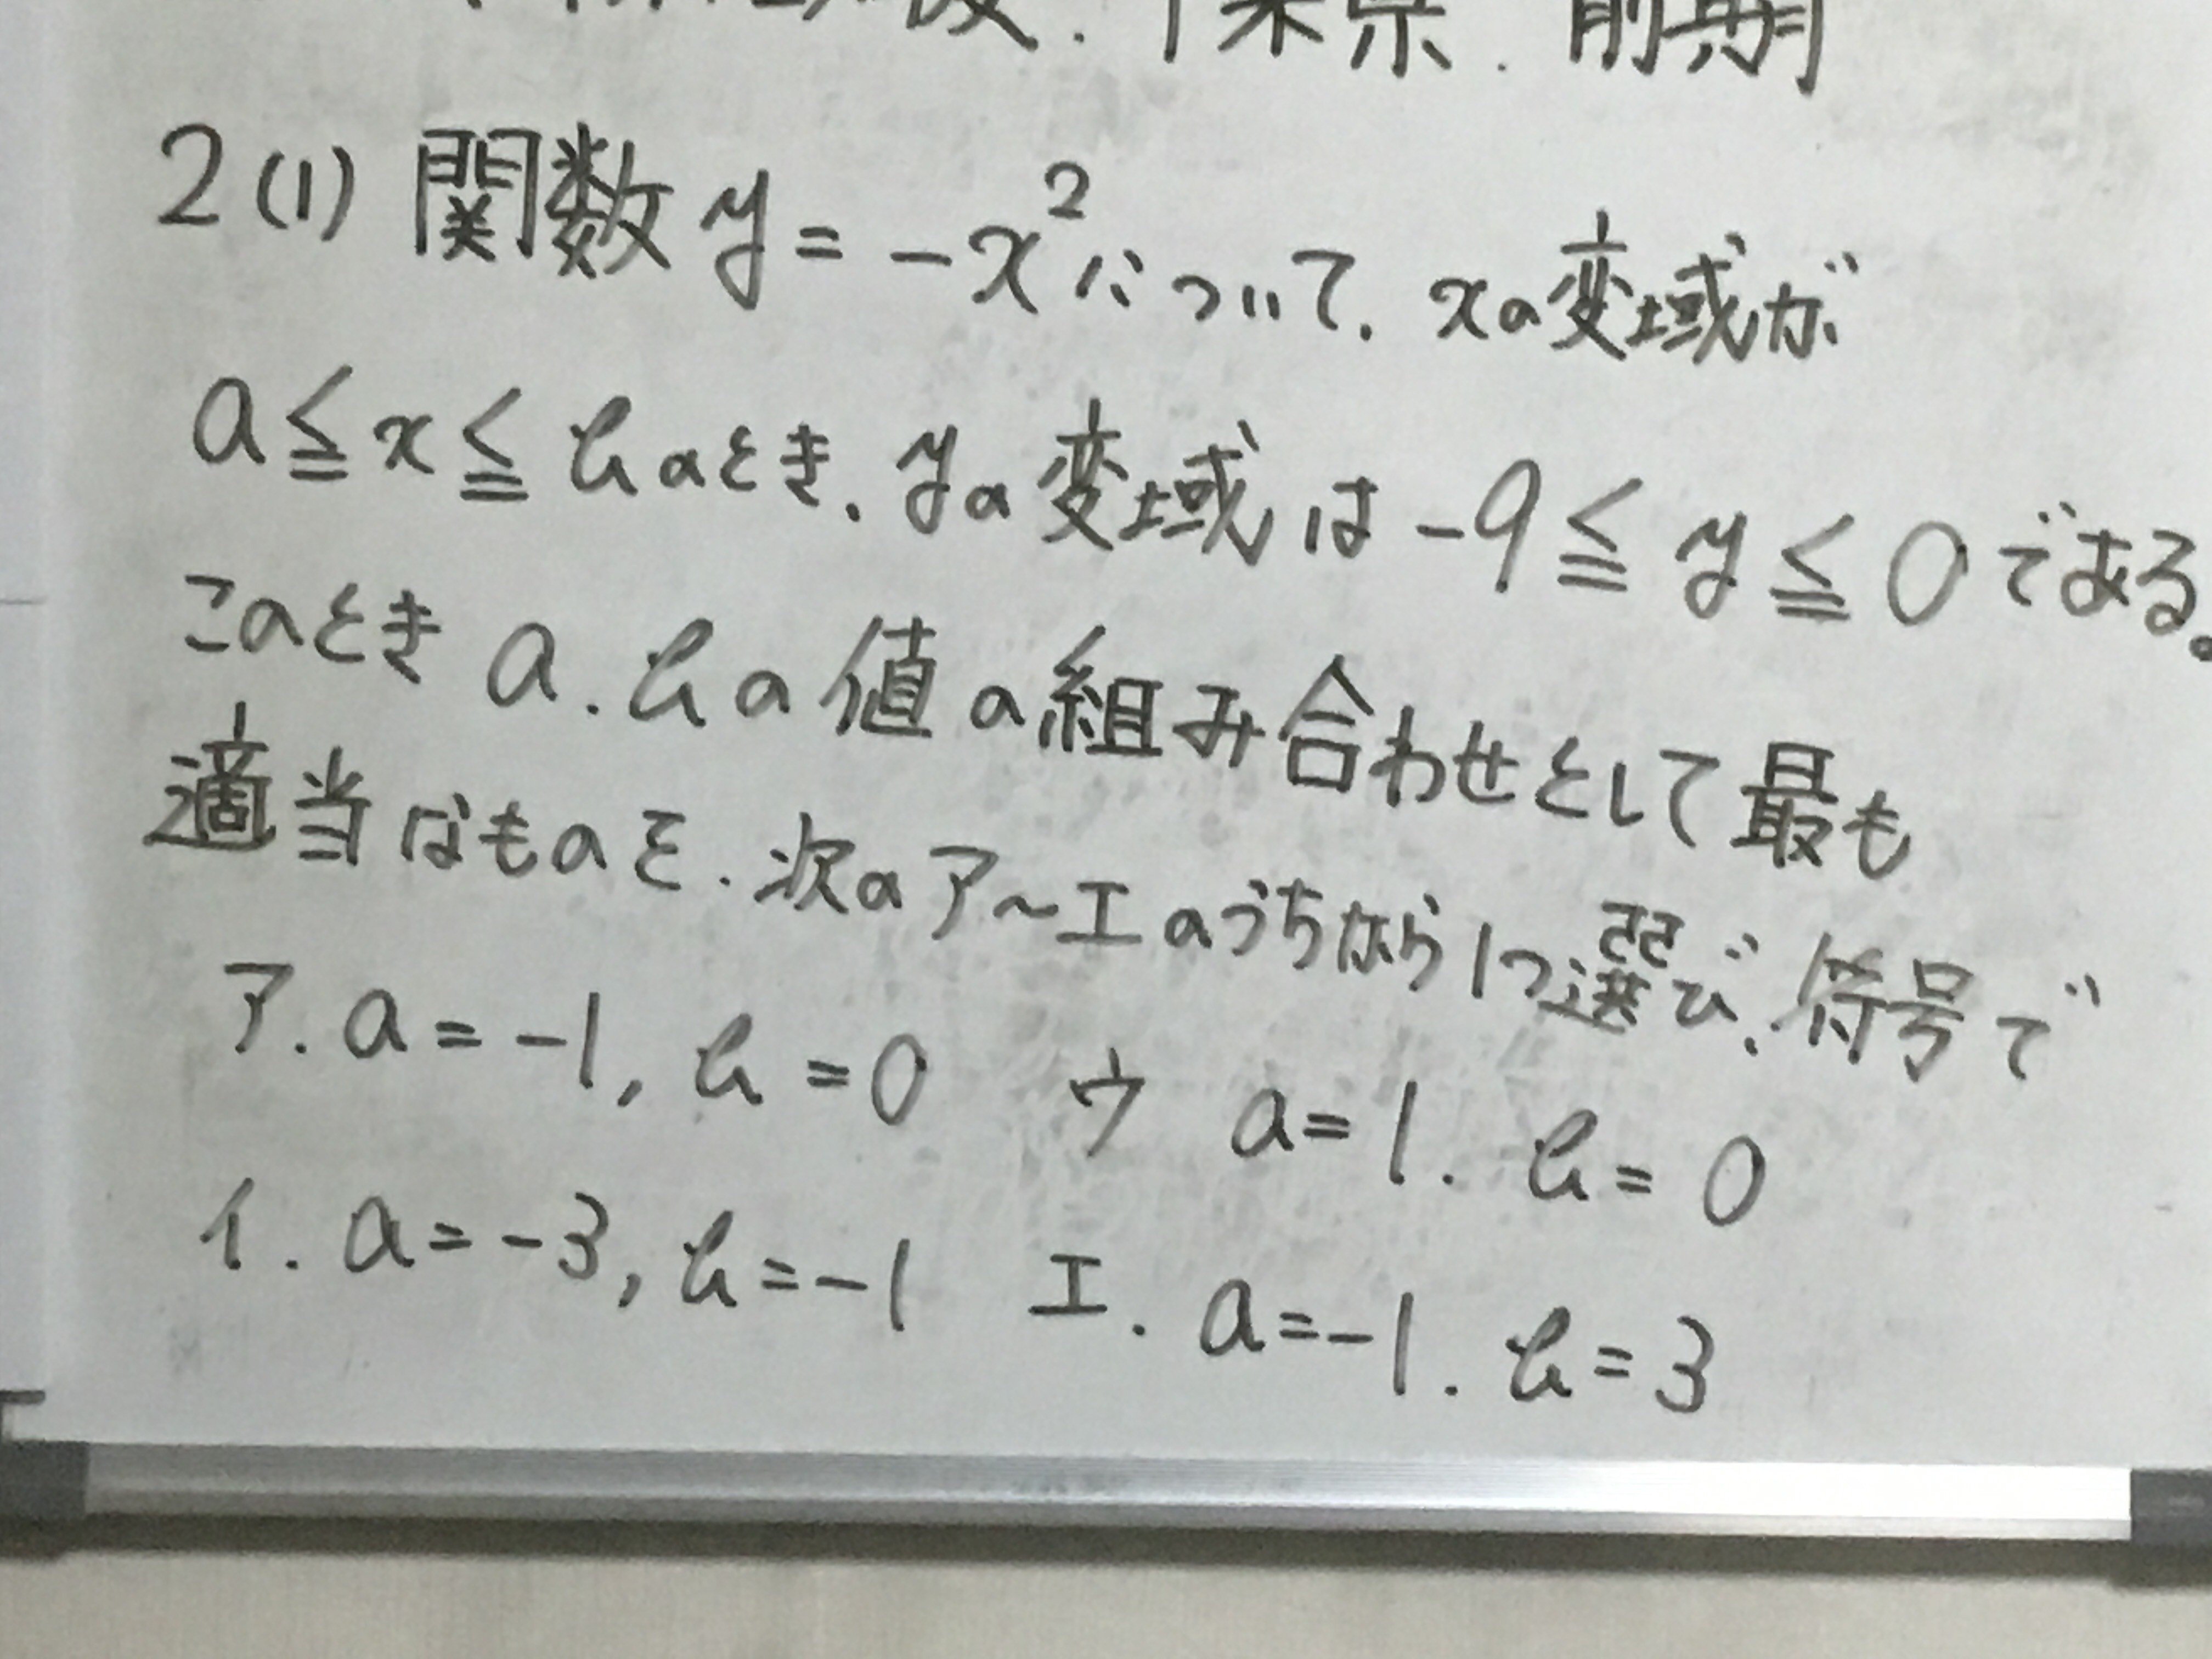 千葉県.前期
2(1) 関数y=-x²について.xの変域が
a≦x≦bのとき.yの変域は-9≦y≦0である。
このときa.bの値の組み合わせとして最も
適当なものを.次のア〜エのうちから1つ選び.符号で
ア.a=-1,b=0 ウ a=1.b=0
イ.a=-3,b=-1 エ.a=-1.b=3